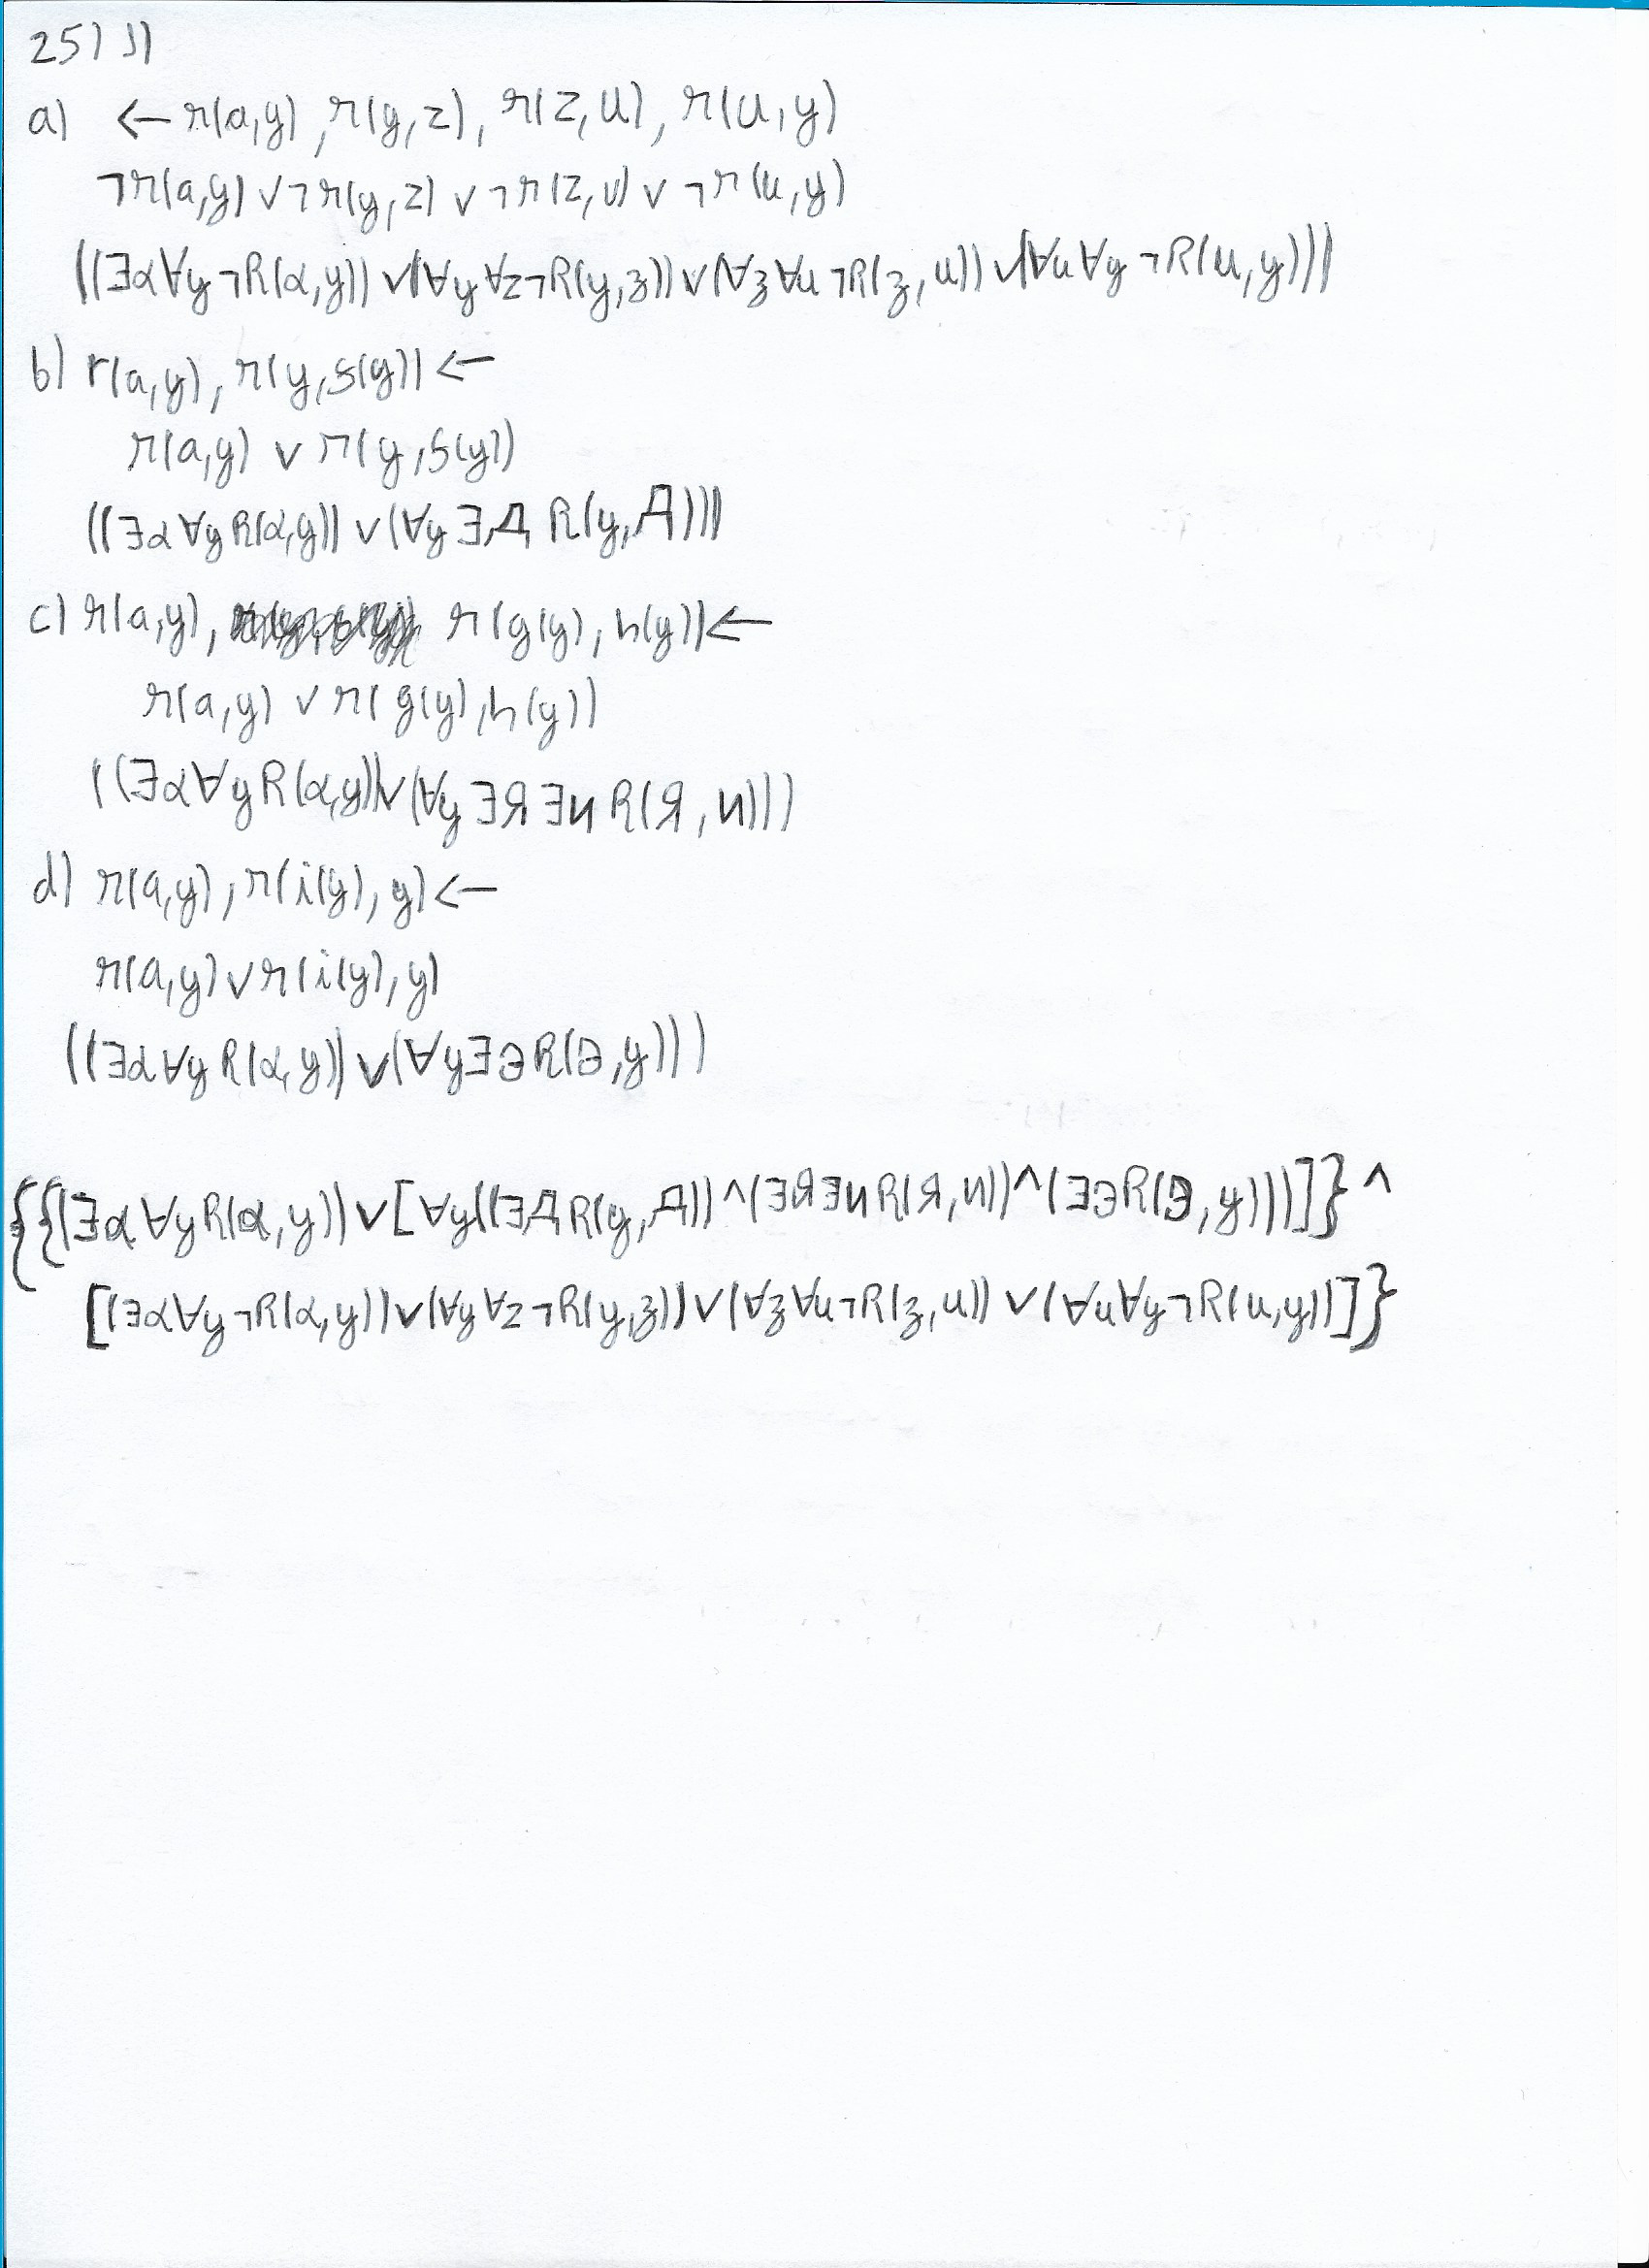 25) 1)
a) ← r(a,y), r(y,z), r(z,u), r(u,y)
¬r(a,y) ∨ ¬r(y,z) ∨ ¬r(z,u) ∨ ¬r(u,y)
((∃α∀y¬R(α,y)) ∨ (∀y∀z¬R(y,z)) ∨ (∀z∀u¬R(z,u)) ∨ (∀u∀y¬R(u,y)))
b) r(a,y), r(y,s(y)) ←
r(a,y) ∨ r(y,s(y))
((∃α∀yR(α,y)) ∨ (∀y∃Д R(y,Д)))
c) r(a,y), r(g(y),h(y)) ←
r(a,y) ∨ r(g(y),h(y))
((∃α∀yR(α,y)) ∨ (∀y∃Я∃И R(Я,И)))
d) r(a,y), r(i(y),y) ←
r(a,y) ∨ r(i(y),y)
((∃α∀yR(α,y)) ∨ (∀y∃Э R(Э,y)))
{{(∃α∀yR(α,y)) ∨ [∀y((∃ДR(y,Д)) ^ (∃Я∃ИR(Я,И)) ^ (∃ЭR(Э,y)))]} ^
[(∃α∀y¬R(α,y)) ∨ (∀y∀z¬R(y,z)) ∨ (∀z∀u¬R(z,u)) ∨ (∀u∀y¬R(u,y))]}